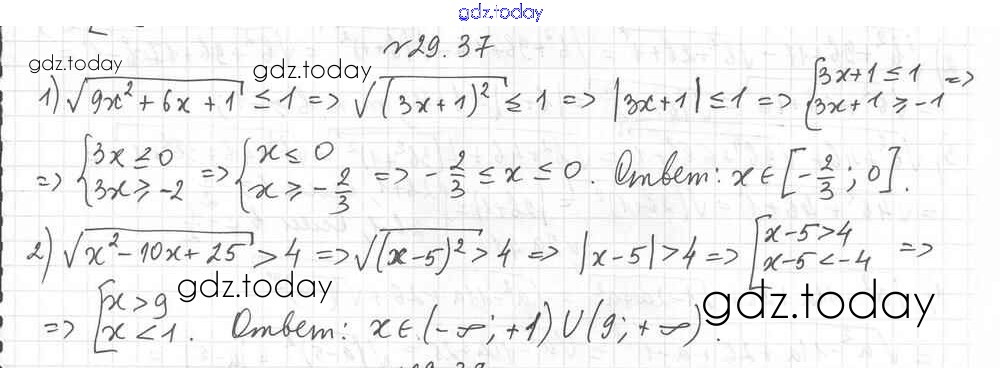 gdz.today
N29.37
gdz.today gdz.today
1) √(9x² + 6x + 1) ≤ 1 => √((3x+1)²) ≤ 1 => |3x+1| ≤ 1 => { 3x+1 ≤ 1 =>
3x+1 ≥ -1
=> { 3x ≤ 0 => { x ≤ 0 => -2/3 ≤ x ≤ 0. Ответ: x ∈ [-2/3; 0].
3x ≥ -2 x ≥ -2/3
2) √(x² - 10x + 25) > 4 => √((x-5)²) > 4 => |x-5| > 4 => [ x-5 > 4 =>
x-5 < -4
gdz.today gdz.today
=> [ x > 9
x < 1. Ответ: x ∈ (-∞; +1) ∪ (9; +∞).